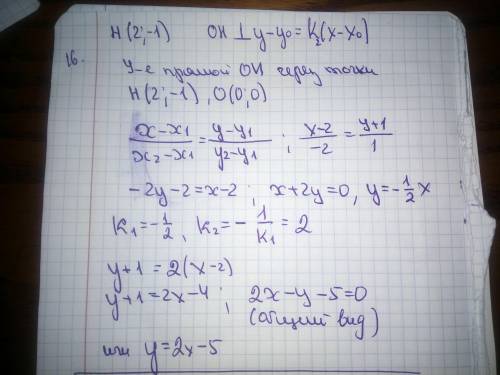 H(2;-1) OH ⊥ y-y₀=K₂(x-x₀)
16.
У-е прямой OH через точки
H(2;-1), O(0;0)
x-x₁/x₂-x₁ = y-y₁/y₂-y₁ ; x-2/-2 = y+1/1
-2y-2=x-2 ; x+2y=0, y=-1/2 x
K₁=-1/2, K₂=-1/K₁=2
y+1=2(x-2)
y+1=2x-4 ; 2x-y-5=0
(общий вид)
или y=2x-5